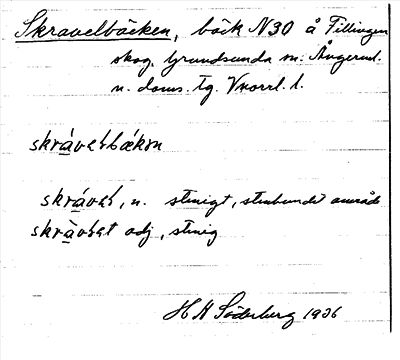 Skravelbäcken, bäck N30 å Fillingen
skog, Grundsunda sn. Ångerml.
n. doms. tg. Vnorrl. l.
skràvaɫbäkɘn
skràvaɫ, n. stenigt, stenbundet område
skràvlat adj, stenig
H H Söderberg 1936